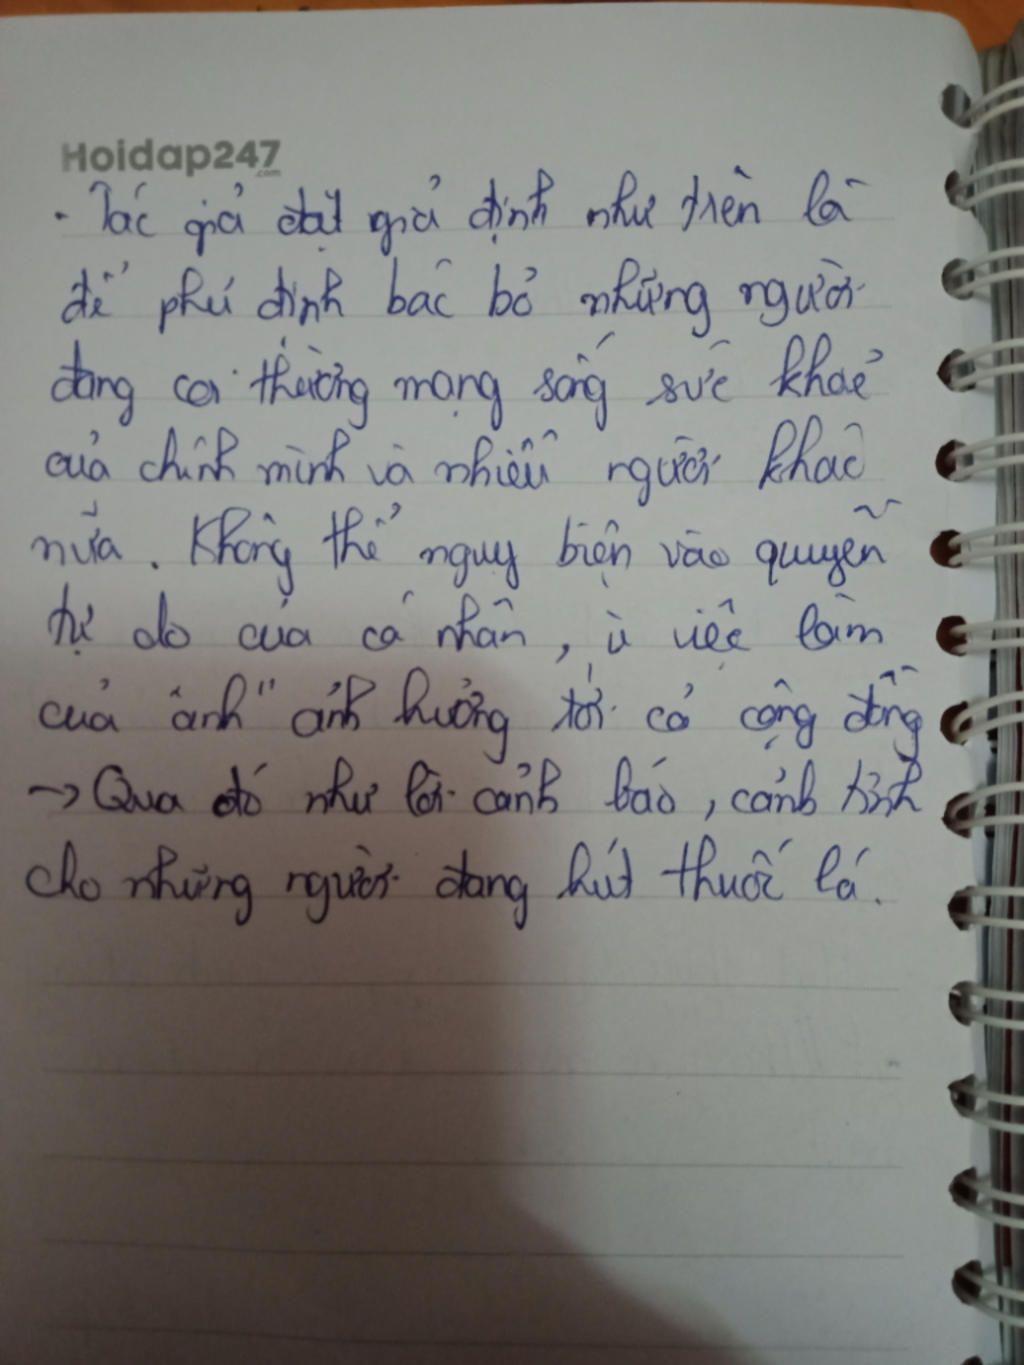 Hoidap247
.com
- Tác giả đặt giả định như trên là
để phủ định bác bỏ những người
đang coi thường mạng sống sức khoẻ
của chính mình và nhiều người khác
nữa. Không thể nguy biện vào quyền
tự do của cá nhân, vì việc làm
của "anh" ảnh hưởng tới cả cộng đồng
→ Qua đó như lời cảnh báo, cảnh tỉnh
cho những người đang hút thuốc lá.